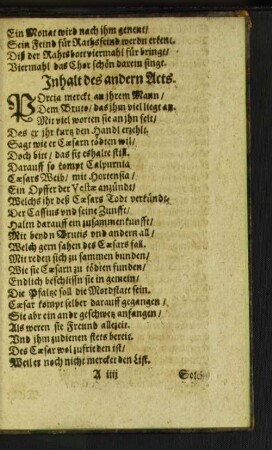 Ein Monat wird nach ihm genent/
Sein Feind für Rathsfeind werdn erkent.
Diß der Rahtsbott viermahl für bringt/
Viermahl das Chor schön darein singt.
Inhalt des andern Acts.
POrcia merckt an jhrem Mann/
Dem Bruto/ das ihm viel liegt an.
Mit viel worten sie an ihn setzt/
Das er ihr kurtz den Handl erzehlt.
Sagt wie er Cæsarn tödten wil/
Doch bitt/ das sie es halte still.
Darauff so kompt Calpurnia
Cæsars Weib/ mit Hortensia/
Ein Opffer der Vestæ anzündt/
Welchs ihr deß Cæsars Todt verkündt.
Der Cassius vnd seine Zunfft/
Halen darauff ein zusammenkunfft/
Mit beydn Brutis vnd andern all/
Welch gern sahen des Cæsars fall.
Mit reden sich zu sammen bunden/
Wie sie Cæsarn zu tödten funden/
Endlich beschliessn sie in gemein/
Die Pfaltze soll die Mordstatt sein.
Cæsar kompt selber darauff gegangen/
Sie abr ein andr geschwetz anfangen/
Als weren sie Freund allezeit.
Vnd ihm zudienen stets bereit.
Des Cæsar wol zufrieden ist/
Weil er noch nicht mercket den List.
A iiij